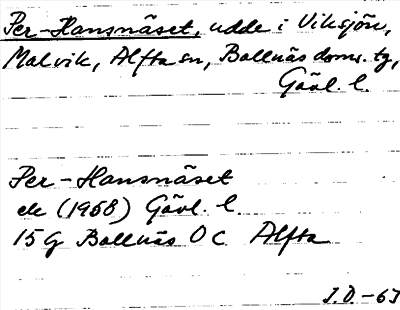 Per-Hansnäset, udde i Viksjön,
Malvik, Alfta sn, Bollnäs doms. tg,
Gävl. l.
Per-Hansnäset
ek (1968) Gävl. l
15 G Bollnäs O C Alfta
J.D.-63